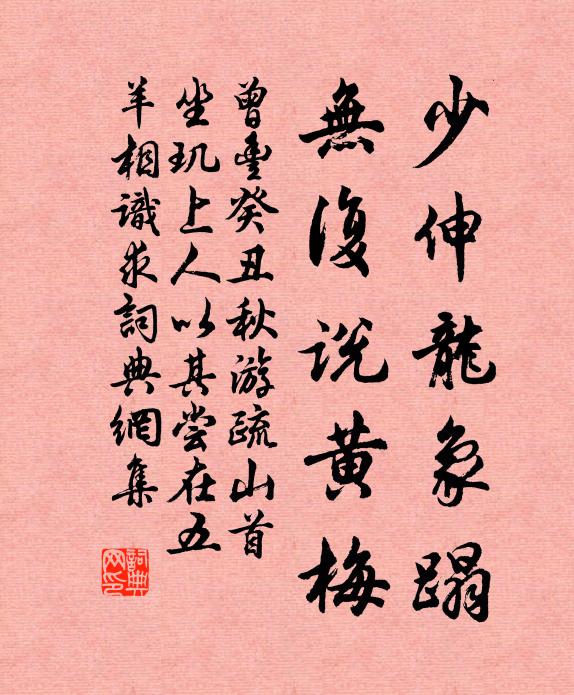 少伸龍象蹋
無復說黃梅
曾豐癸丑秋游疏山首
坐玑上人以其嘗在五
羊相識求詞典網集
詞典网印